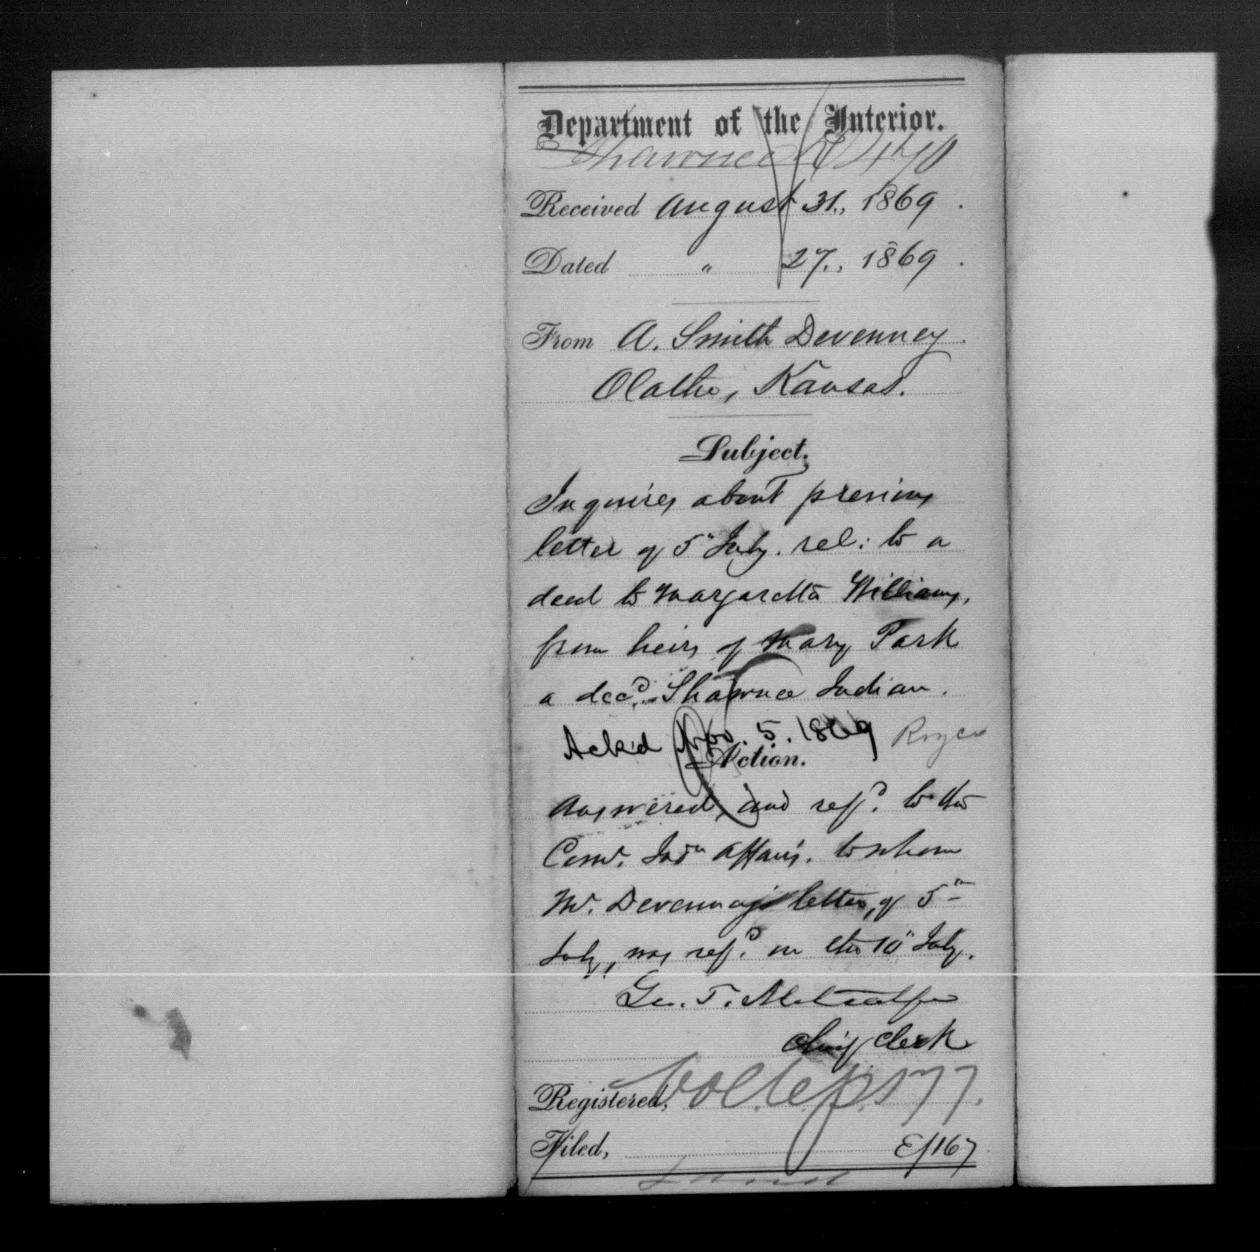 Department of the Interior.
Shawnee
Received August 31., 1869.
Dated " 27., 1869.
From A. Smith Devenney
Olathe, Kansas.
Subject.
Inquires about previous
letter of 5" July. rel: to a
deed to Margaretta Williams,
from heirs of Mary Park
a decd. Shawnee Indian.
Ackd Nov. 5. 1869
Action.
Answered, and refd. to the
Comr. Indn Affairs. to whom
Mr. Devenney's letter, of 5th
July, was refd. on the 10" July.
Geo. T. Metcalfe
Chief Clerk
Registered, Vol. p. 177.
Filed, E/167